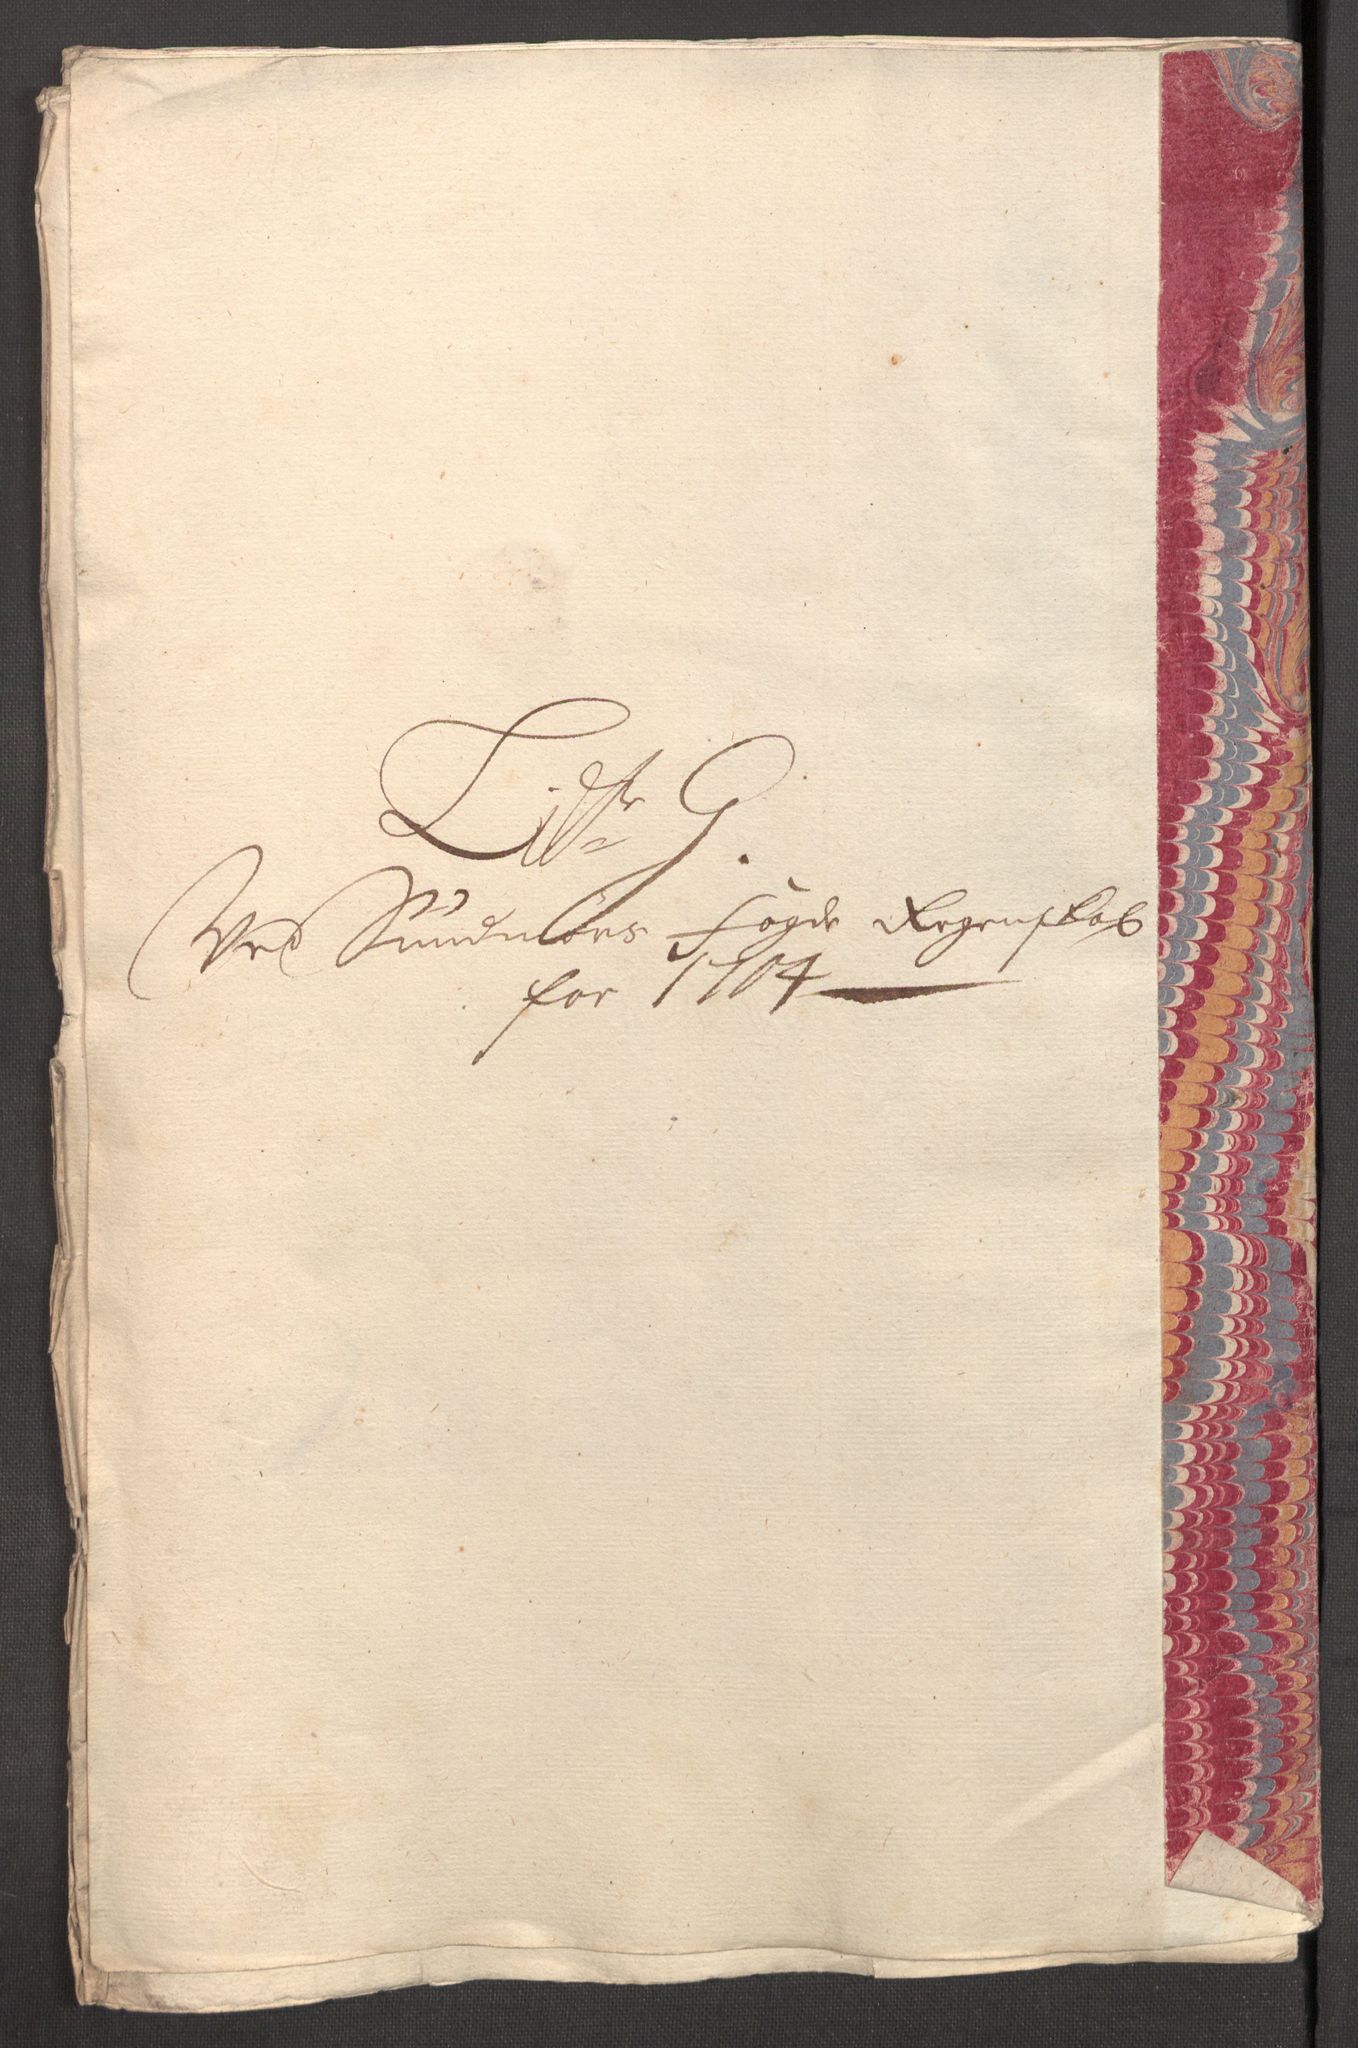 Littr G.
Ved Sundmörs Fogde Regenskab
for 1704